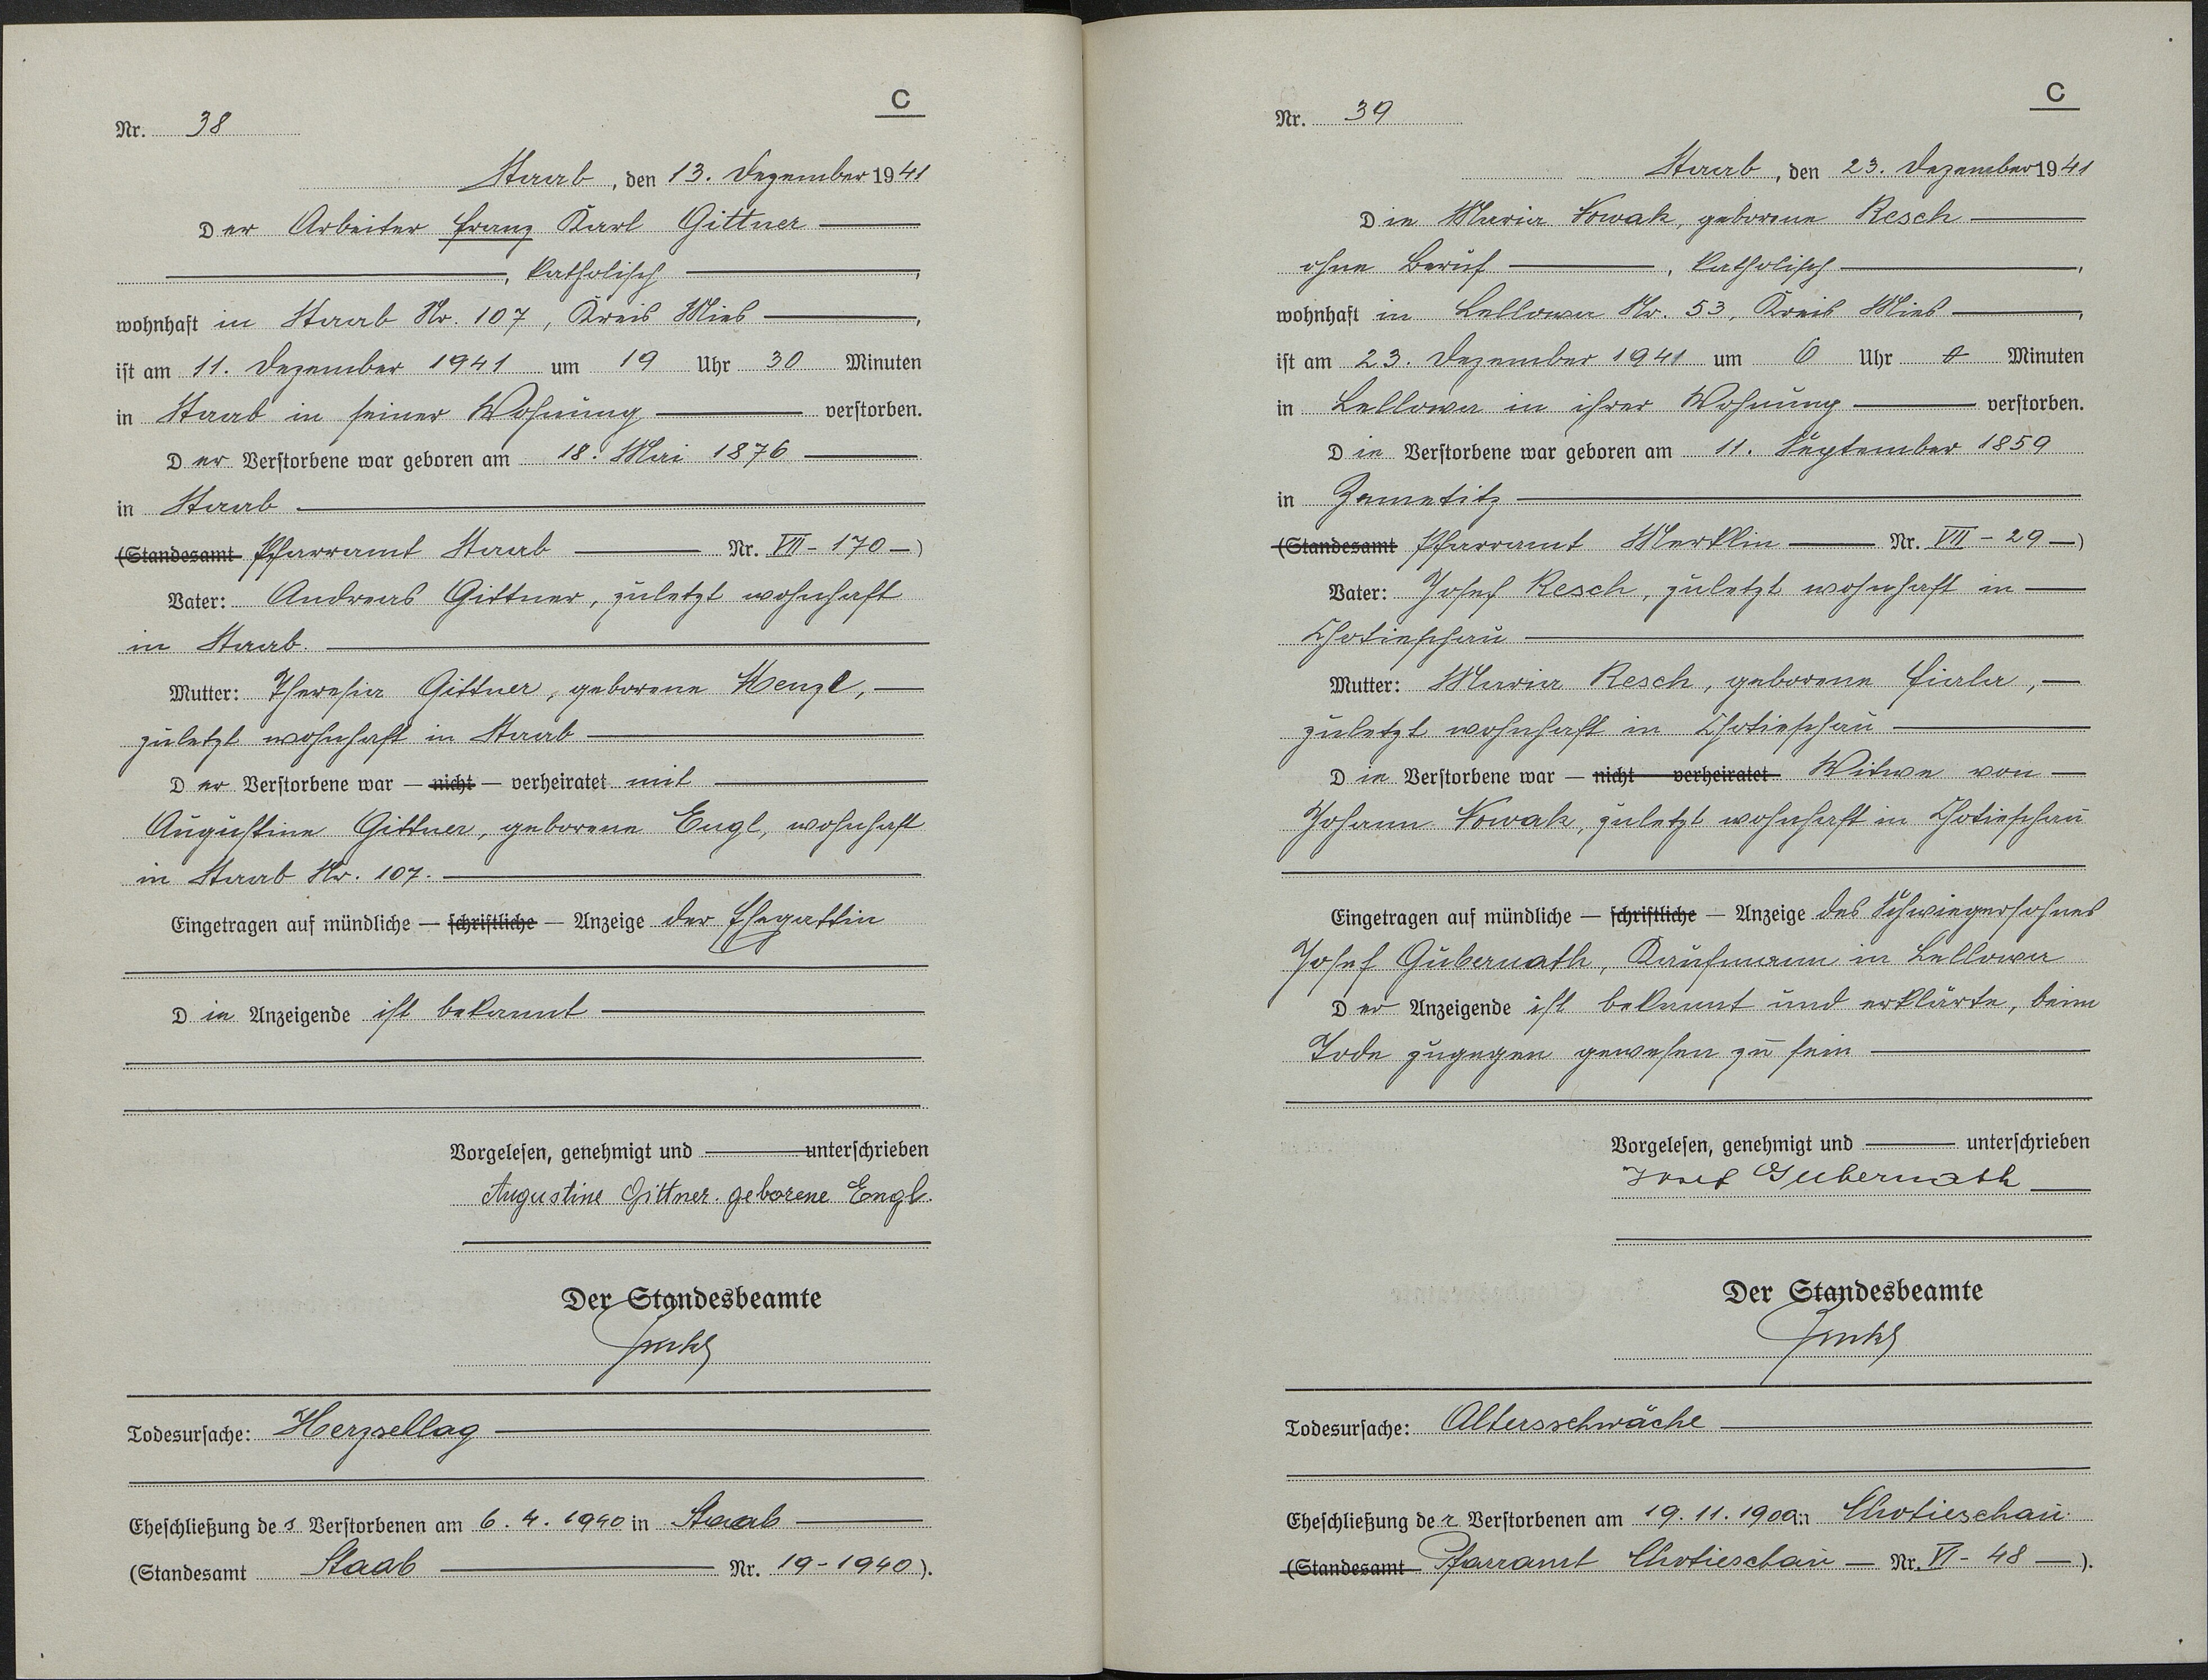 C
Nr. 38
Staab, den 13. Dezember 1941
Der Arbeiter Franz Karl Gittner
, katholisch,
wohnhaft in Staab Nr. 107, Kreis Mies,
ist am 11. Dezember 1941 um 19 Uhr 30 Minuten
in Staab in seiner Wohnung verstorben.
Der Verstorbene war geboren am 18. Mai 1876
in Staab
(Standesamt Pfarramt Staab Nr. VII - 170 -)
Vater: Andreas Gittner, zuletzt wohnhaft
in Staab.
Mutter: Theresia Gittner, geborene Menzl,
zuletzt wohnhaft in Staab
Der Verstorbene war — nicht — verheiratet mit
Augustine Gittner, geborene Engl, wohnhaft
in Staab Nr. 107.
Eingetragen auf mündliche — schriftliche — Anzeige der Ehegattin
Die Anzeigende ist bekannt
Vorgelesen, genehmigt und unterschrieben
Augustine Gittner geborene Engl.
Der Standesbeamte
Todesursache: Herzschlag
Eheschließung des Verstorbenen am 6.4.1940 in Staab
(Standesamt Staab Nr. 19-1940).
C
Nr. 39
Staab, den 23. Dezember 1941
Die Maria Nowak, geborene Resch
ohne Beruf, katholisch,
wohnhaft in Lellowa Nr. 53, Kreis Mies,
ist am 23. Dezember 1941 um 6 Uhr 0 Minuten
in Lellowa in ihrer Wohnung verstorben.
Die Verstorbene war geboren am 11. September 1859
in Zemetitz
(Standesamt Pfarramt Merklin Nr. VII - 29 —)
Vater: Josef Resch, zuletzt wohnhaft in
Chotieschau
Mutter: Maria Resch, geborene Fiala,
zuletzt wohnhaft in Chotieschau
Die Verstorbene war — nicht verheiratet Witwe von
Johann Nowak, zuletzt wohnhaft in Chotieschau
Eingetragen auf mündliche — schriftliche — Anzeige des Schwiegersohnes
Josef Gubernath, Kaufmann in Lellowa
Der Anzeigende ist bekannt und erklärte, beim
Tode zugegen gewesen zu sein
Vorgelesen, genehmigt und unterschrieben
Josef Gubernath
Der Standesbeamte
Todesursache: Altersschwäche
Eheschließung der Verstorbenen am 19.11.1900 in Chotieschau
(Standesamt Pfarramt Chotieschau — Nr. VI - 48 —).